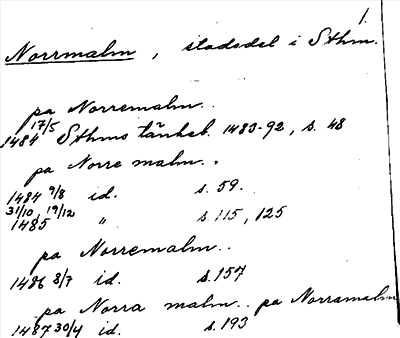 1.
Norrmalm, stadsdel i Sthm.
pa Norremalm..
17/5
1484 Sthms tänkeb. 1483-92, s. 48
pa Norre malm..
1484 9/8 id. s. 59.
31/10, 19/12
1485 " s 115, 125
pa Norremalm..
1486 8/7 id. s. 157
pa Norra malm.. pa Norramalm
1487 30/4 id. s. 193